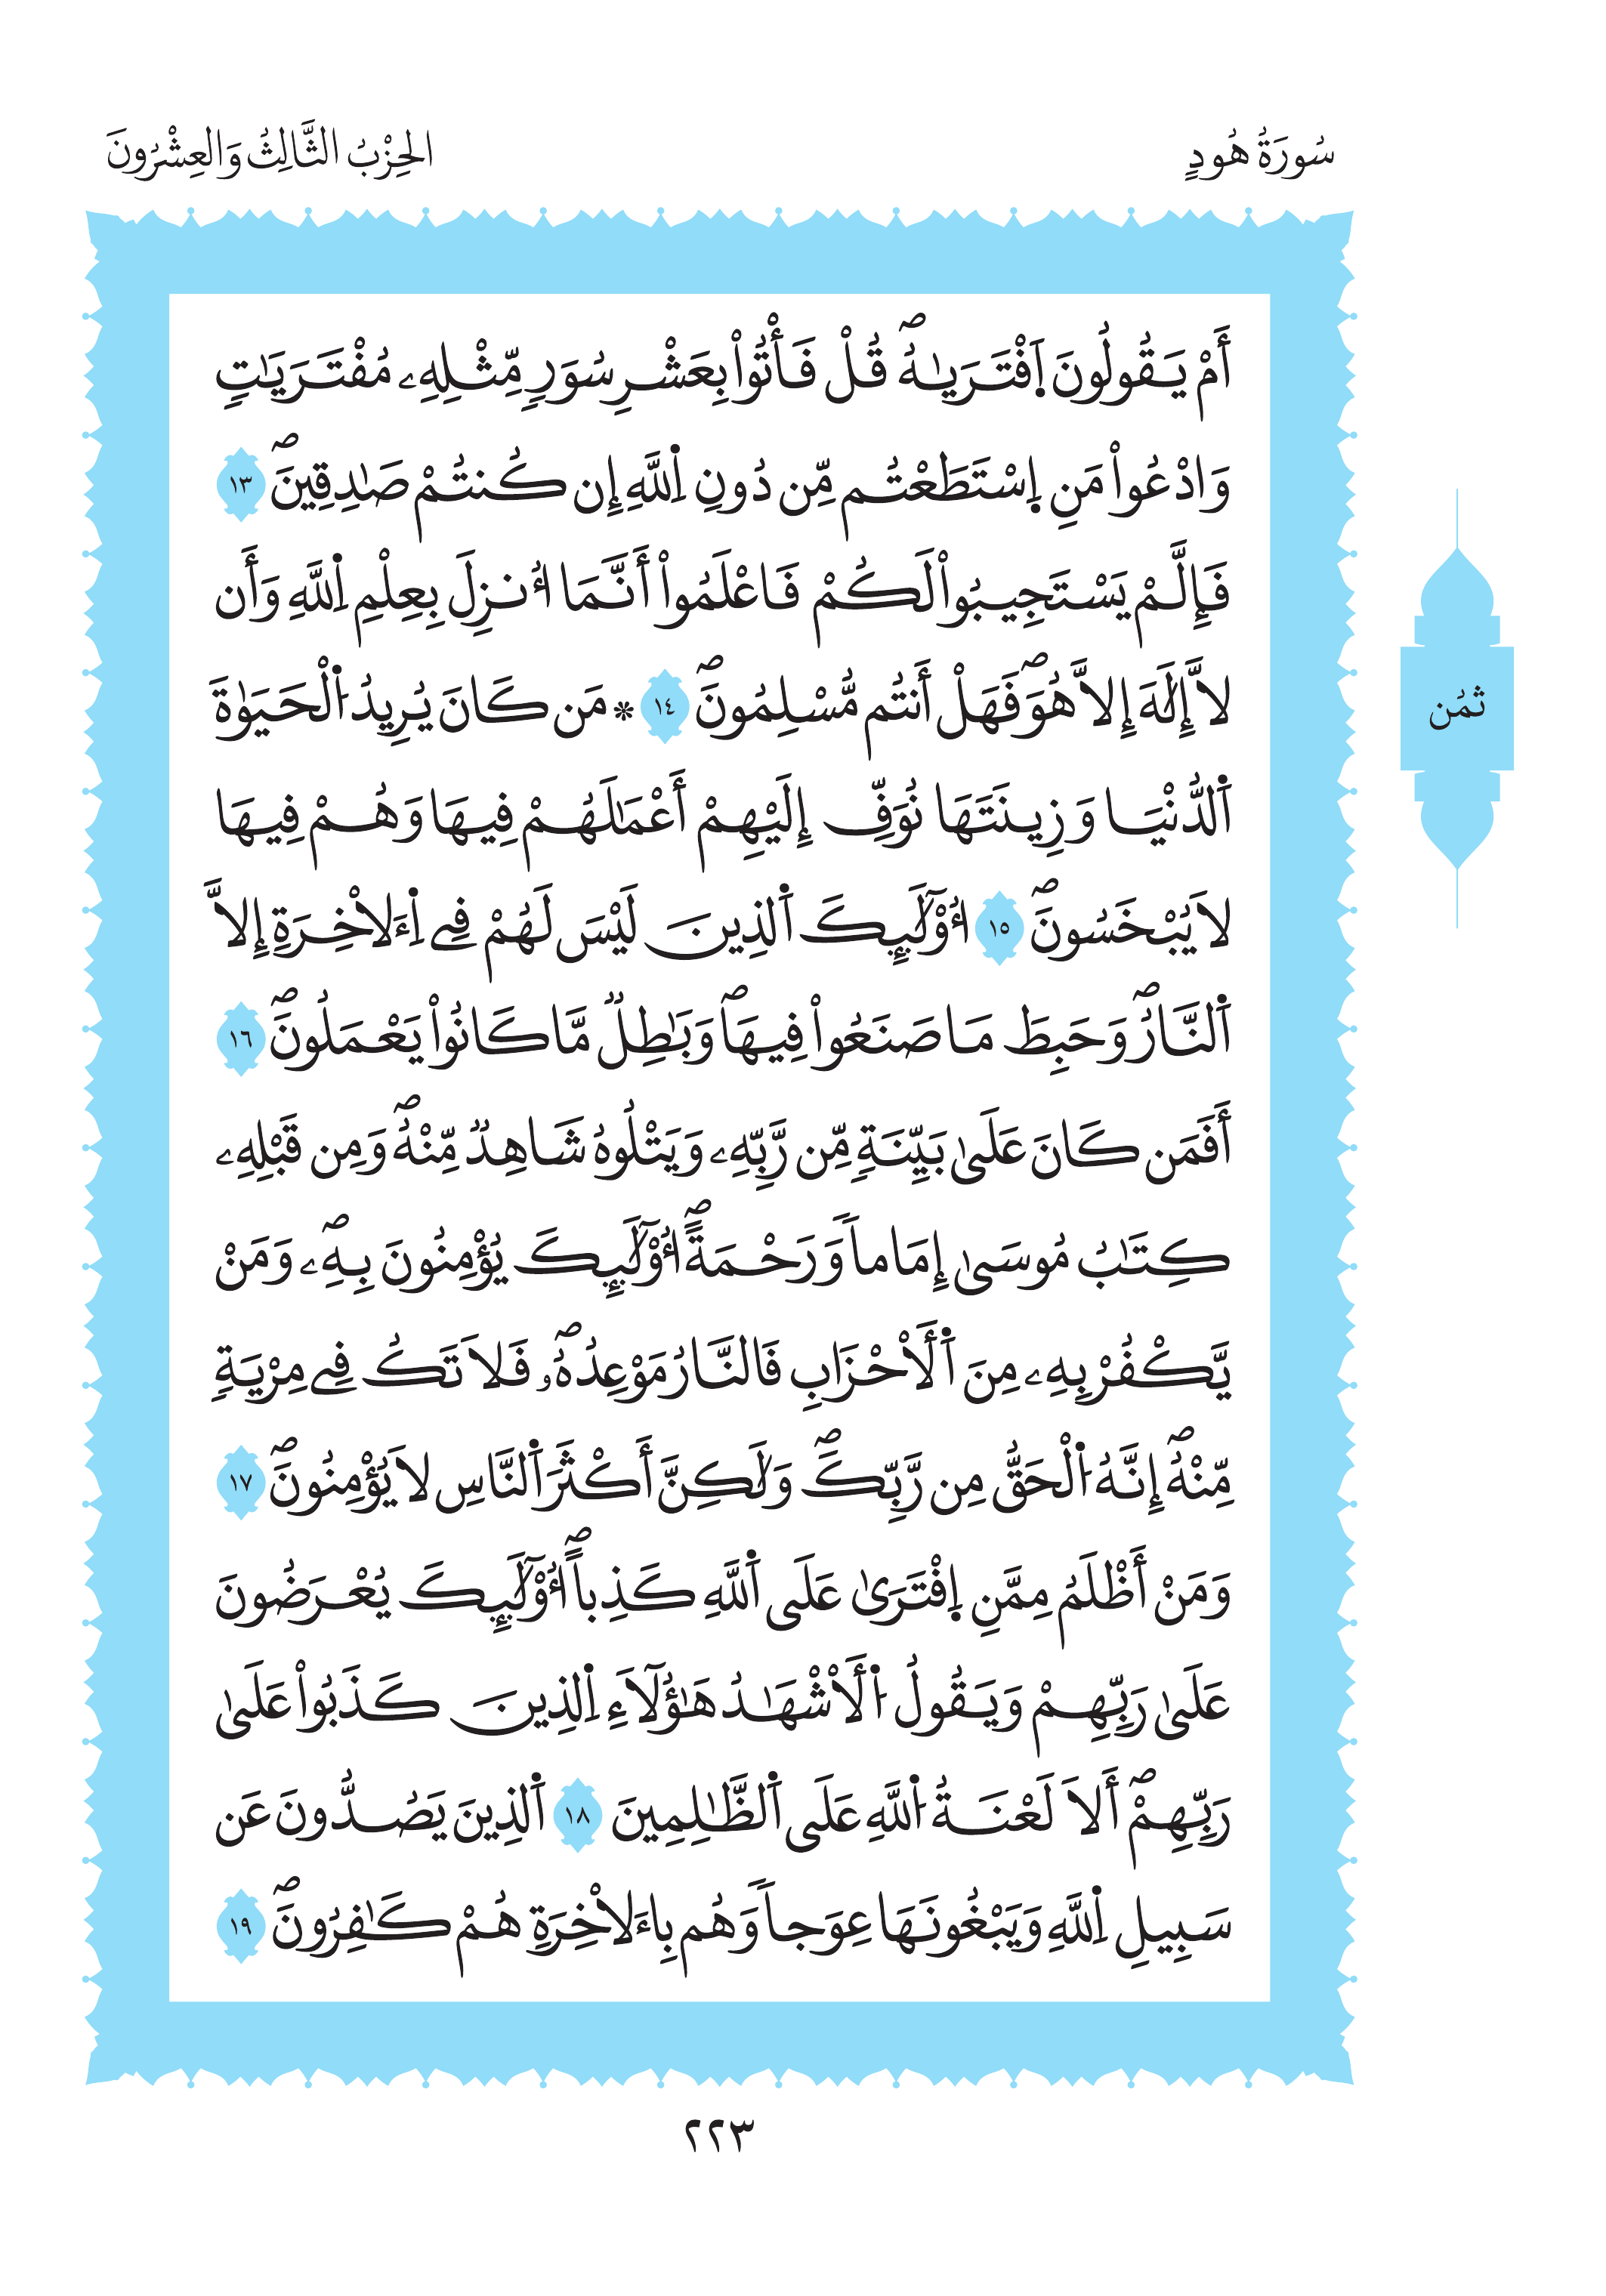 سُورَةُ هُودٍ
الحِزْبُ الثَّالِثُ وَالعِشْرُونَ
أَمْ يَقُولُونَ اَ۪فْتَرَيٰهُۖ قُلْ فَأْتُواْ بِعَشْرِ سُوَرٖ مِّثْلِهِۦ مُفْتَرَيَٰتٖ
وَادْعُواْ مَنِ اِ۪سْتَطَعْتُم مِّن دُونِ اِ۬للَّهِ إِن كُنتُمْ صَٰدِقِينَۖ ١٣
فَإِلَّمْ يَسْتَجِيبُواْ لَكُمْ فَاعْلَمُواْ أَنَّمَا أُنزِلَ بِعِلْمِ اِ۬للَّهِ وَأَن
لاَّ إِلَٰهَ إِلاَّ هُوَۖ فَهَلْ أَنتُم مُّسْلِمُونَۖ ١٤ * مَن كَانَ يُرِيدُ اُ۬لْحَيَوٰةَ
اَ۬لدُّنْيَا وَزِينَتَهَا نُوَفِّ إِلَيْهِمْ أَعْمَٰلَهُمْ فِيهَا وَهُمْ فِيهَا
لاَ يُبْخَسُونَۖ ١٥ أُوْلَٰٓئِكَ اَ۬لذِينَ لَيْسَ لَهُمْ فِے اِ۬ءَلاْخِرَةِ إِلاَّ
اَ۬لنَّارُۖ وَحَبِطَ مَا صَنَعُواْ فِيهَاۖ وَبَٰطِلٞ مَّا كَانُواْ يَعْمَلُونَۖ ١٦
أَفَمَن كَانَ عَلَىٰ بَيِّنَةٖ مِّن رَّبِّهِۦ وَيَتْلُوهُ شَاهِدٞ مِّنْهُۖ وَمِن قَبْلِهِۦ
كِتَٰبُ مُوسَىٰ إِمَاماٗ وَرَحْمَةًۖ أُوْلَٰٓئِكَ يُؤْمِنُونَ بِهِۦۖ وَمَنْ
يَّكْفُرْ بِهِۦ مِنَ اَ۬لَأْحْزَابِ فَالنَّارُ مَوْعِدُهُۥۖ فَلاَ تَكُ فِے مِرْيَةٖ
مِّنْهُۖ إِنَّهُ اُ۬لْحَقُّ مِن رَّبِّكَۖ وَلَٰكِنَّ أَكْثَرَ اَ۬لنَّاسِ لاَ يُؤْمِنُونَۖ ١٧
وَمَنْ أَظْلَمُ مِمَّنِ اِ۪فْتَرَىٰ عَلَى اَ۬للَّهِ كَذِباًۖ أُوْلَٰٓئِكَ يُعْرَضُونَ
عَلَىٰ رَبِّهِمْ وَيَقُولُ اُ۬لَأْشْهَٰدُ هَٰؤُلَآءِ اِ۬لذِينَ كَذَبُواْ عَلَىٰ
رَبِّهِمْۖ أَلاَ لَعْنَةُ اُ۬للَّهِ عَلَى اَ۬لظَّٰلِمِينَ ١٨ اَ۬لذِينَ يَصُدُّونَ عَن
سَبِيلِ اِ۬للَّهِ وَيَبْغُونَهَا عِوَجاٗ وَهُم بِاءَلاْخِرَةِ هُمْ كَٰفِرُونَۖ ١٩
ثمُن
٢٢٣